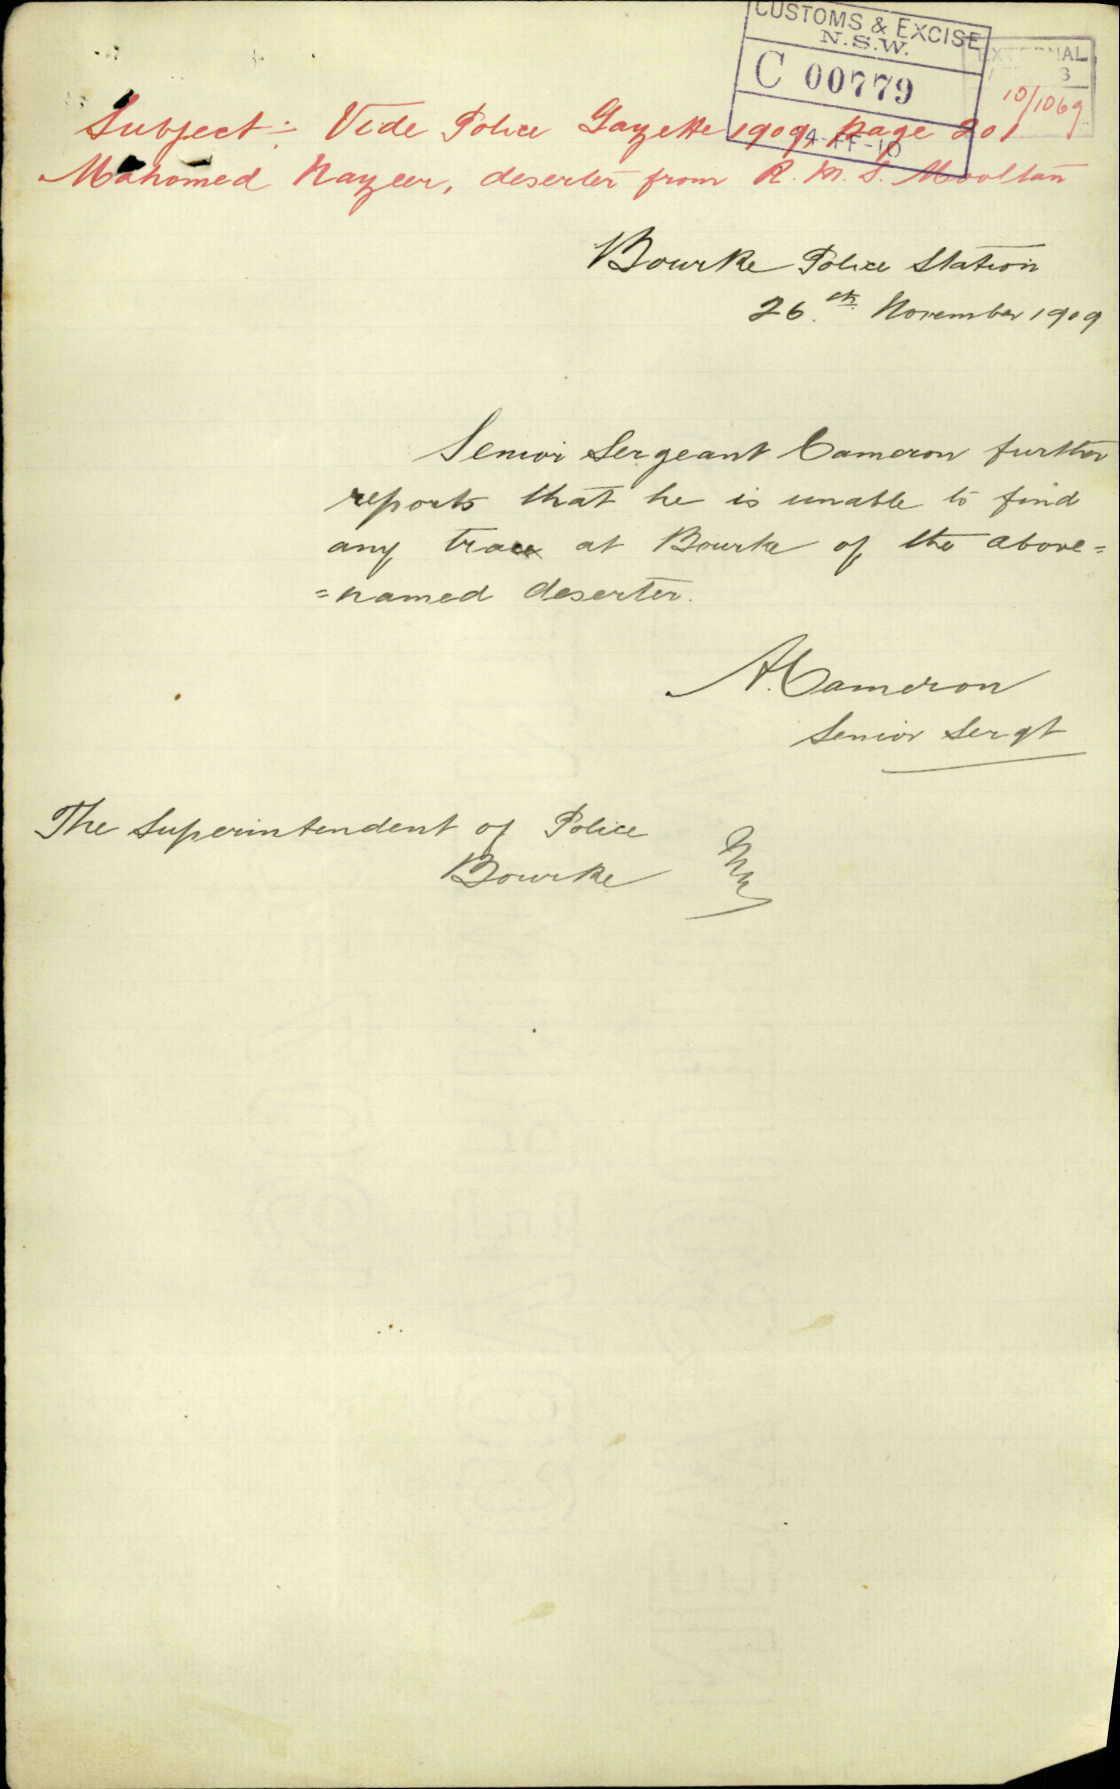 CUSTOMS & EXCISE
N.S.W.
C 00779
10/1069
Subject:- Vide Police Gazette 1909, page 201
Mahomed Nazeer, deserter from R.M.S. Mooltan
Bourke Police Station
26th November 1909
Senior Sergeant Cameron further
reports that he is unable to find
any trace at Bourke of the above=
=named deserter.
A. Cameron
Senior Sergt
The Superintendent of Police
Bourke